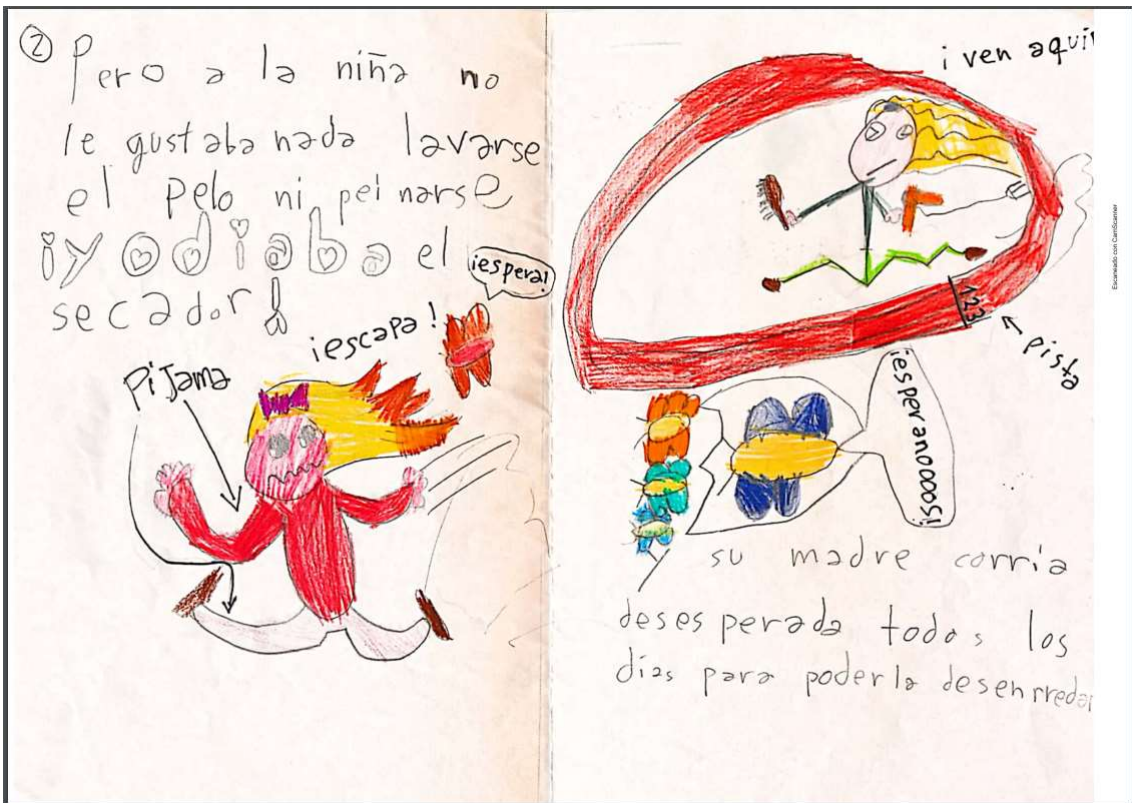 ②
Pero a la niña no
le gustaba nada lavarse
el pelo ni peinarse
¡y odiaba el
secador!
¡espera!
¡escapa!
Pijama
¡ven aquí!
123
pista
¡esperanooooos!
su madre corría
desesperada todos los
días para poderla desenrredar
Escaneado con CamScanner